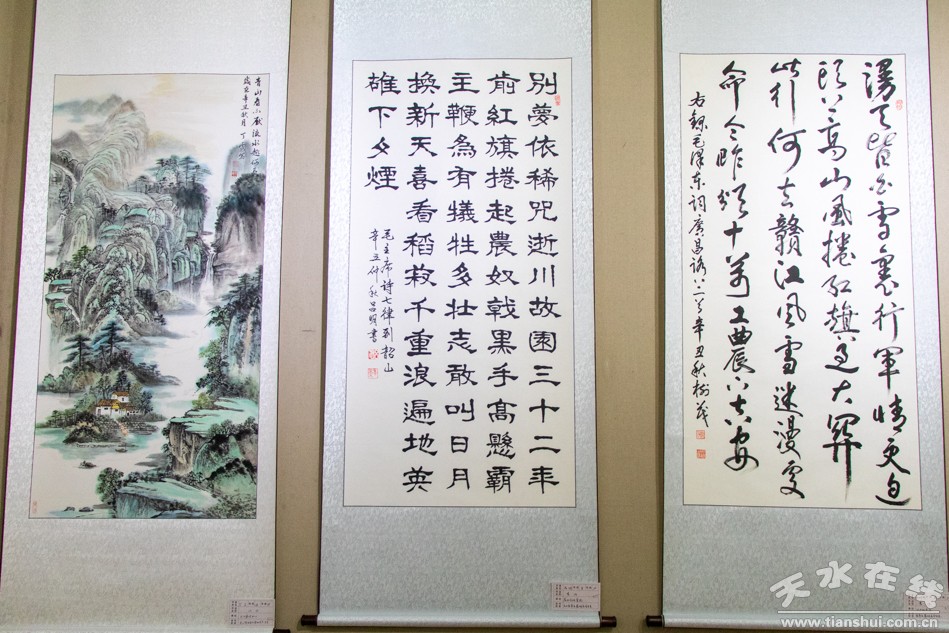 漫天皆白雪裏行軍情更迫
頭上高山風捲紅旗過大關
此行何去贛江風雪迷漫處
命令昨頒十萬工農下吉安
右錄毛澤東詞廣昌路上一首辛丑秋樹茂
別夢依稀咒逝川故園三十二年
前紅旗捲起農奴戟黑手高懸霸
主鞭為有犧牲多壯志敢叫日月
換新天喜看稻菽千重浪遍地英
雄下夕煙
毛主席詩七律到韶山
辛丑仲秋呂明書
青山看不厭流水趣
歲在辛丑秋月
天水在线
www.tianshui.com.cn